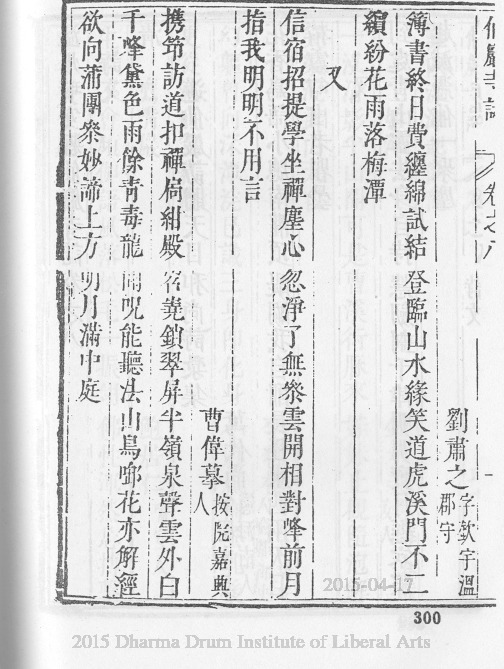 劉肅之字歎宇溫郡守
簿書終日費纏綿試結登臨山水緣笑道虎溪門不二
繽紛花雨落梅潭
又
信宿招提學坐禪塵心忽淨了無叅雲開相對峰前月
指我明明不用言
曹偉謩按院嘉興人
携笻訪道扣禪扃紺殿岧嶤鎖翠屏半嶺泉聲雲外白
千峰黛色雨餘青毒龍聞咒能聽法山鳥啣花亦解經
欲向蒲團叅妙諦上方明月滿中庭
卷之八
2015-04-17
300
2015 Dharma Drum Institute of Liberal Arts